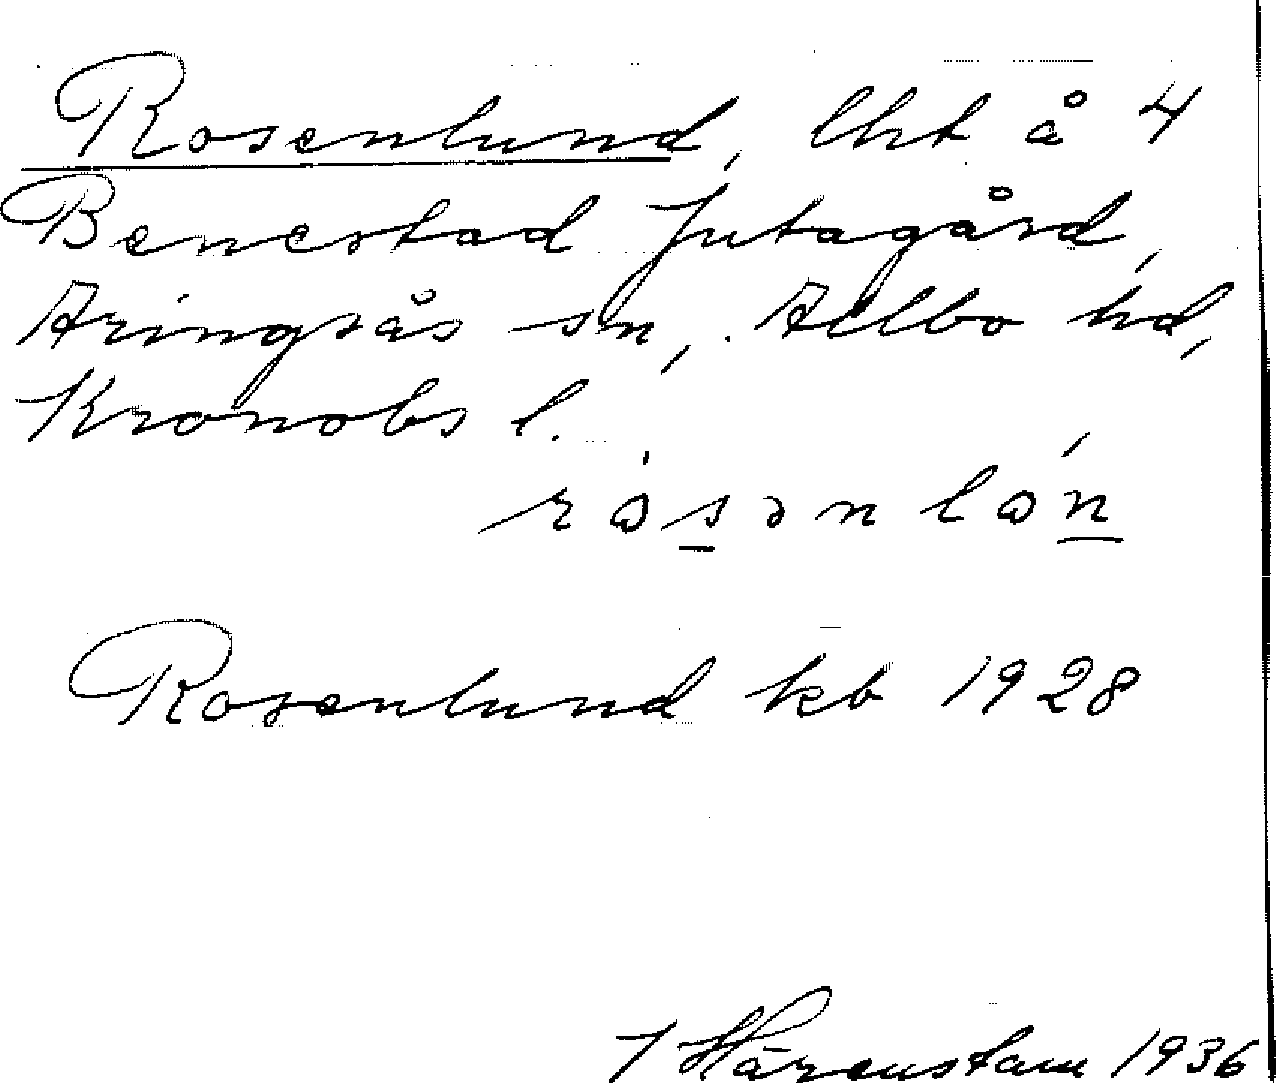 Rosenlund, lht å 4
Benestad Jutagård,
Aringsås sn, Allbo hd,
Kronobs l.
Rosenlund kb 1928
J Härenstam 1936